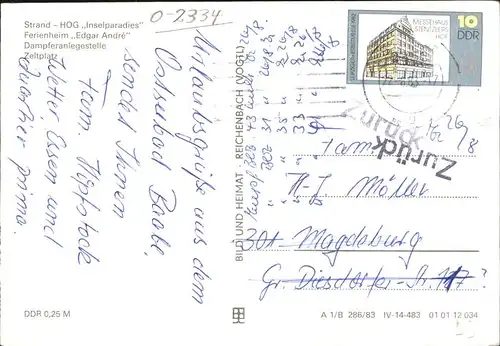 0-2334
Strand - HOG „Inselparadies"
Ferienheim „Edgar André"
Dampferanlegestelle
Zeltplatz
Urlaubsgrüße aus dem
Ostseebad Baabe,
sendet Ihnen
Fam. Hopfstock
Wetter Essen und
Quartier prima.
DDR 0,25 M
BILD UND HEIMAT · REICHENBACH (VOGTL)
MESSEHAUS
STENTZLERS
HOF
10
DDR
Zurück
Zurück
26/8
Fam.
H-J. Möller
301 Magdeburg
Gr. Diesdorfer-Str. 117?
A 1/B 286/83 IV-14-483 01 01 12 034